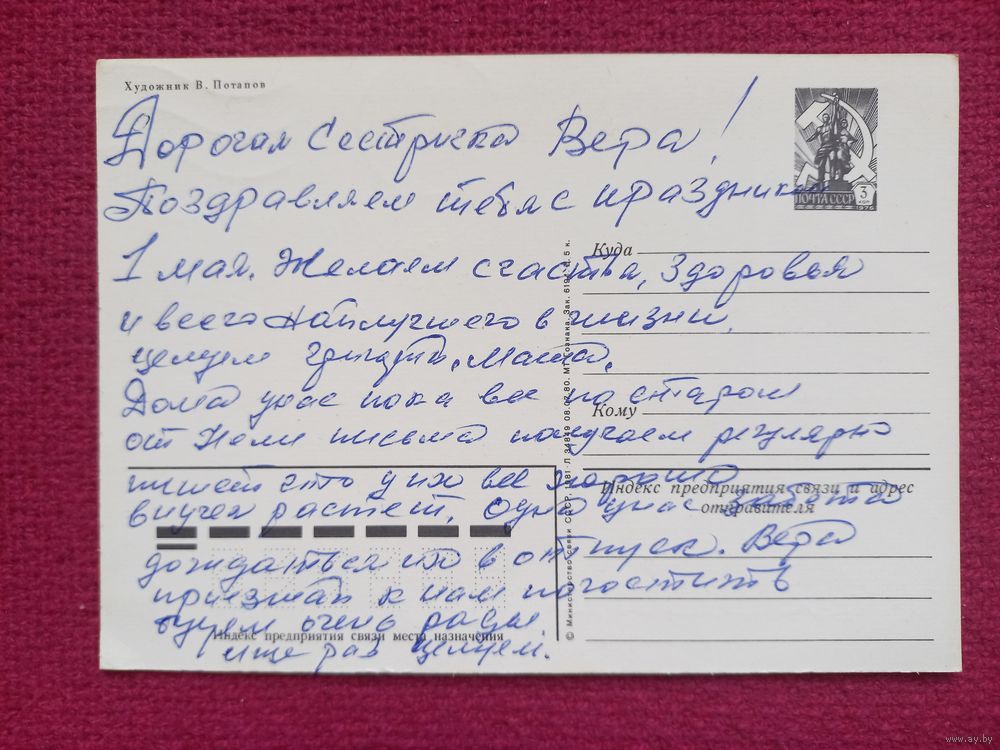 Художник В. Потапов
Дорогая Сестричка Вера!
Поздравляем тебя с праздником
1 мая. Желаем счастья, здоровья
и всего наилучшего в жизни.
целуем Григорий, Маша.
Дома у нас пока все по старом
от Нели письма получаем регулярно
пишет что у них все хорошо
внучек растет. Одна у нас забота
дождаться их в отпуск. Вера
приезжай к нам погостить
будем очень рады
ище раз целуем.
ПОЧТА СССР
3
коп
1976
Куда
Кому
Индекс предприятия связи и адрес
отправителя
Индекс предприятия связи места назначения
© Министерство связи СССР, 1981 Л 34849 08.07.80. МТ Гознака. Зак. 5 к.
www.ay.by